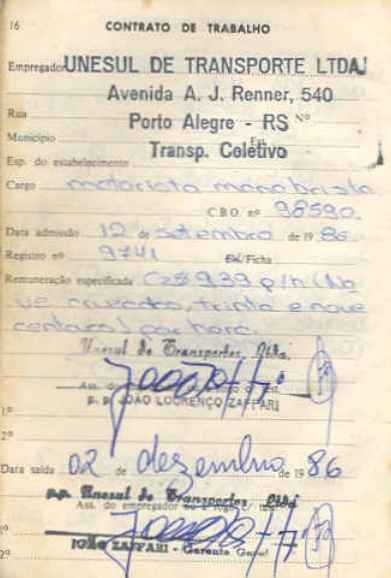 16 CONTRATO DE TRABALHO
Empregador UNESUL DE TRANSPORTE LTDA
Avenida A. J. Renner, 540
Rua Nº
Porto Alegre - RS
Município Est.
Transp. Coletivo
Esp. do estabelecimento
Cargo motorista manobrista
C.B.O. nº 98590.
Data admissão 12 de setembro de 19 86.
Registro nº 9741 Fl/Ficha
Remuneração especificada Cz$ 9,39 p/h (No
ve cruzados, trinta e nove
centavos) por hora.
Unesul de Transportes, Ltda.
Ass. do
p. p. JOÃO LOURENÇO ZAFFARI
1º
2º
Data saída 02 de dezembro de 19 86
p.p. Unesul de Transportes, Ltda
Ass. do empregador ou a rogo c/
1º
JOÃO ZAFFARI - Gerente Geral
2º